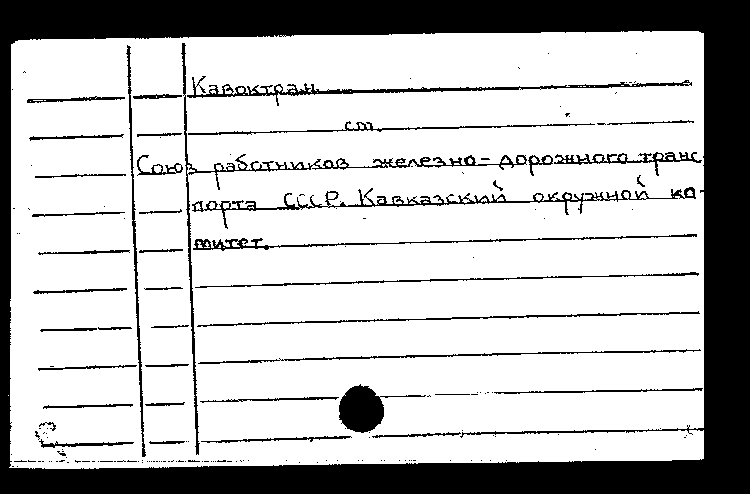 Кавоктран.
см.
Союз работников железно-дорожного транс
порта СССР. Кавказский окружной ко-
митет.